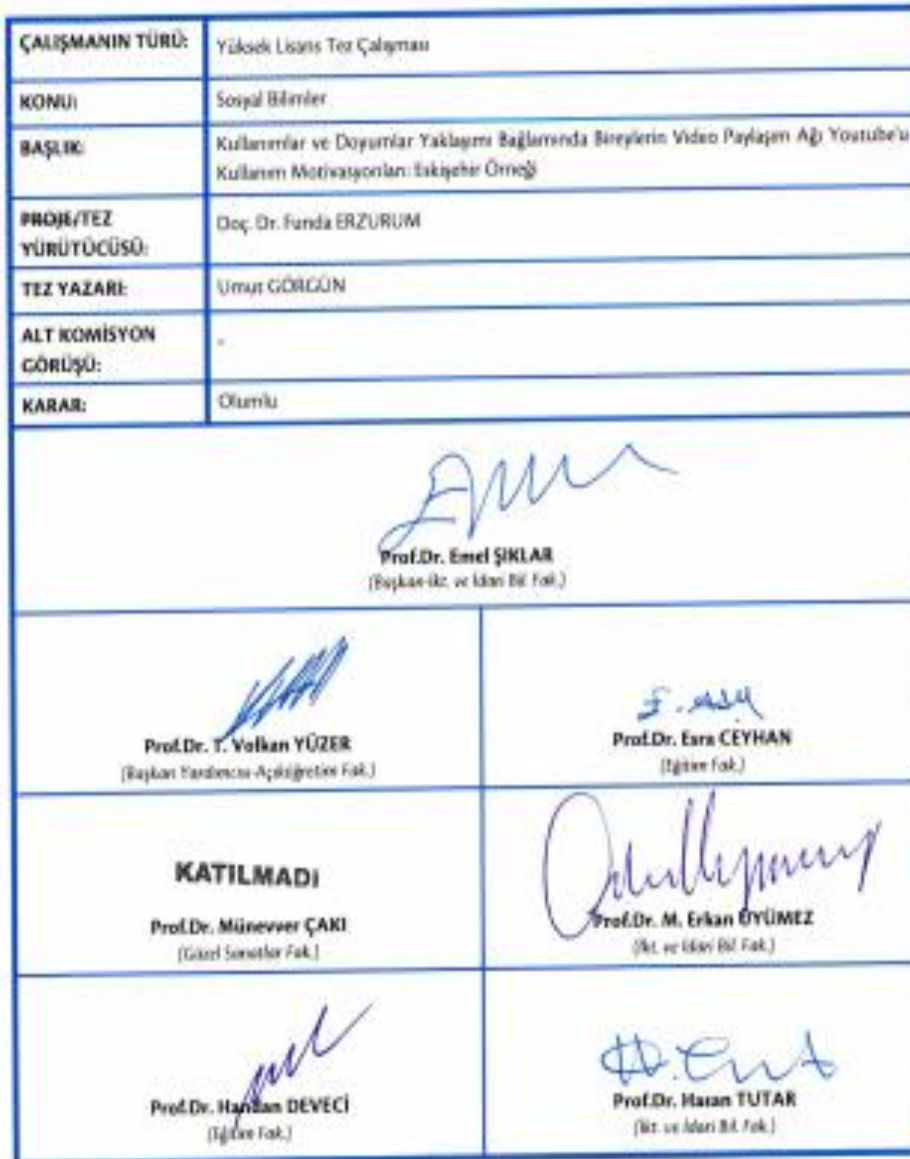 ÇALIŞMANIN TÜRÜ: Yüksek Lisans Tez Çalışması
KONU: Sosyal Bilimler
BAŞLIK: Kullanımlar ve Doyumlar Yaklaşımı Bağlamında Bireylerin Video Paylaşım Ağı Youtube'u
Kullanım Motivasyonları: Eskişehir Örneği
PROJE/TEZ
YÜRÜTÜCÜSÜ: Doç. Dr. Funda ERZURUM
TEZ YAZARI: Umut GÖRGÜN
ALT KOMİSYON
GÖRÜŞÜ: -
KARAR: Olumlu
Prof.Dr. Emel ŞIKLAR
(Başkan-İkt. ve İdari Bil. Fak.)
Prof.Dr. T. Volkan YÜZER
(Başkan Yardımcısı-Açıköğretim Fak.)
Prof.Dr. Esra CEYHAN
(Eğitim Fak.)
KATILMADI
Prof.Dr. Münevver ÇAKI
(Güzel Sanatlar Fak.)
Prof.Dr. M. Erkan ÜYÜMEZ
(İkt. ve İdari Bil. Fak.)
Prof.Dr. Handan DEVECİ
(Eğitim Fak.)
Prof.Dr. Hasan TUTAR
(İkt. ve İdari Bil. Fak.)